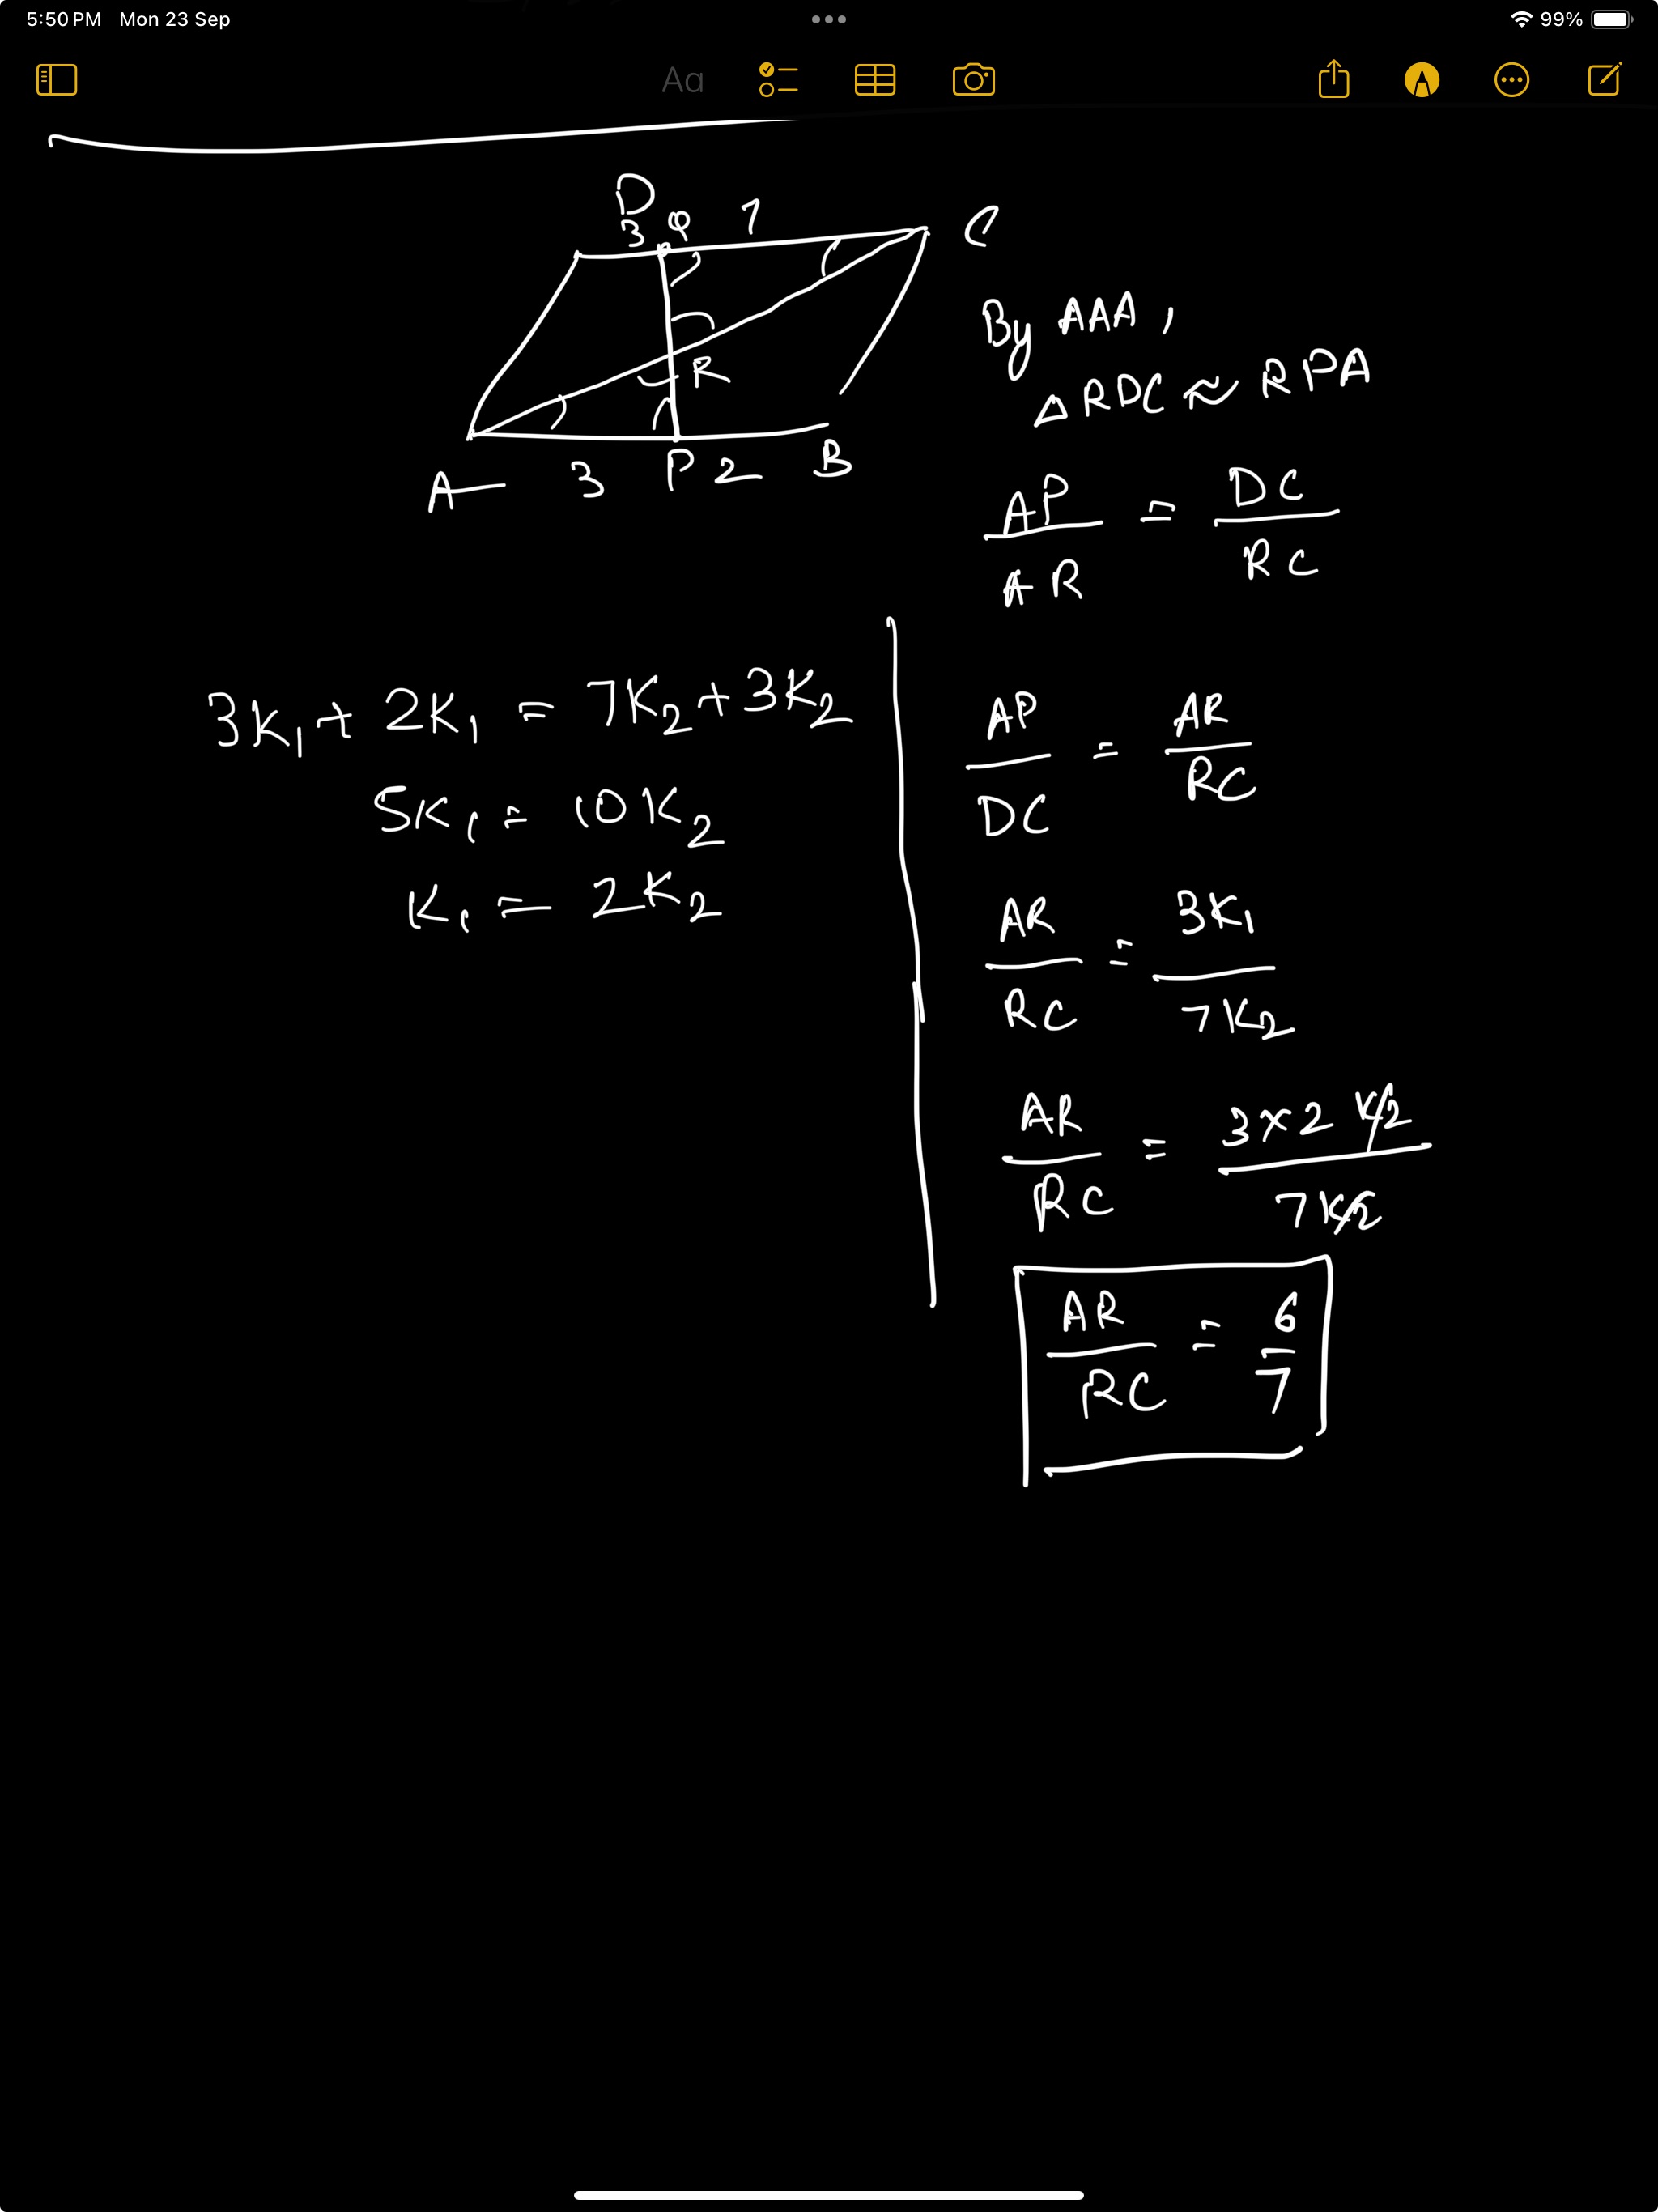 5:50 PM Mon 23 Sep
99%
Aa
D
3 Q 7 C
R
A 3 P 2 B
By AAA,
△RDC ≈ RPA
AP/AR = DC/RC
3K₁ + 2K₁ = 7K₂ + 3K₂
5K₁ = 10K₂
K₁ = 2K₂
AP/DC = AR/RC
AR/RC = 3K₁/7K₂
AR/RC = 3×2K₂/7K₂
AR/RC = 6/7